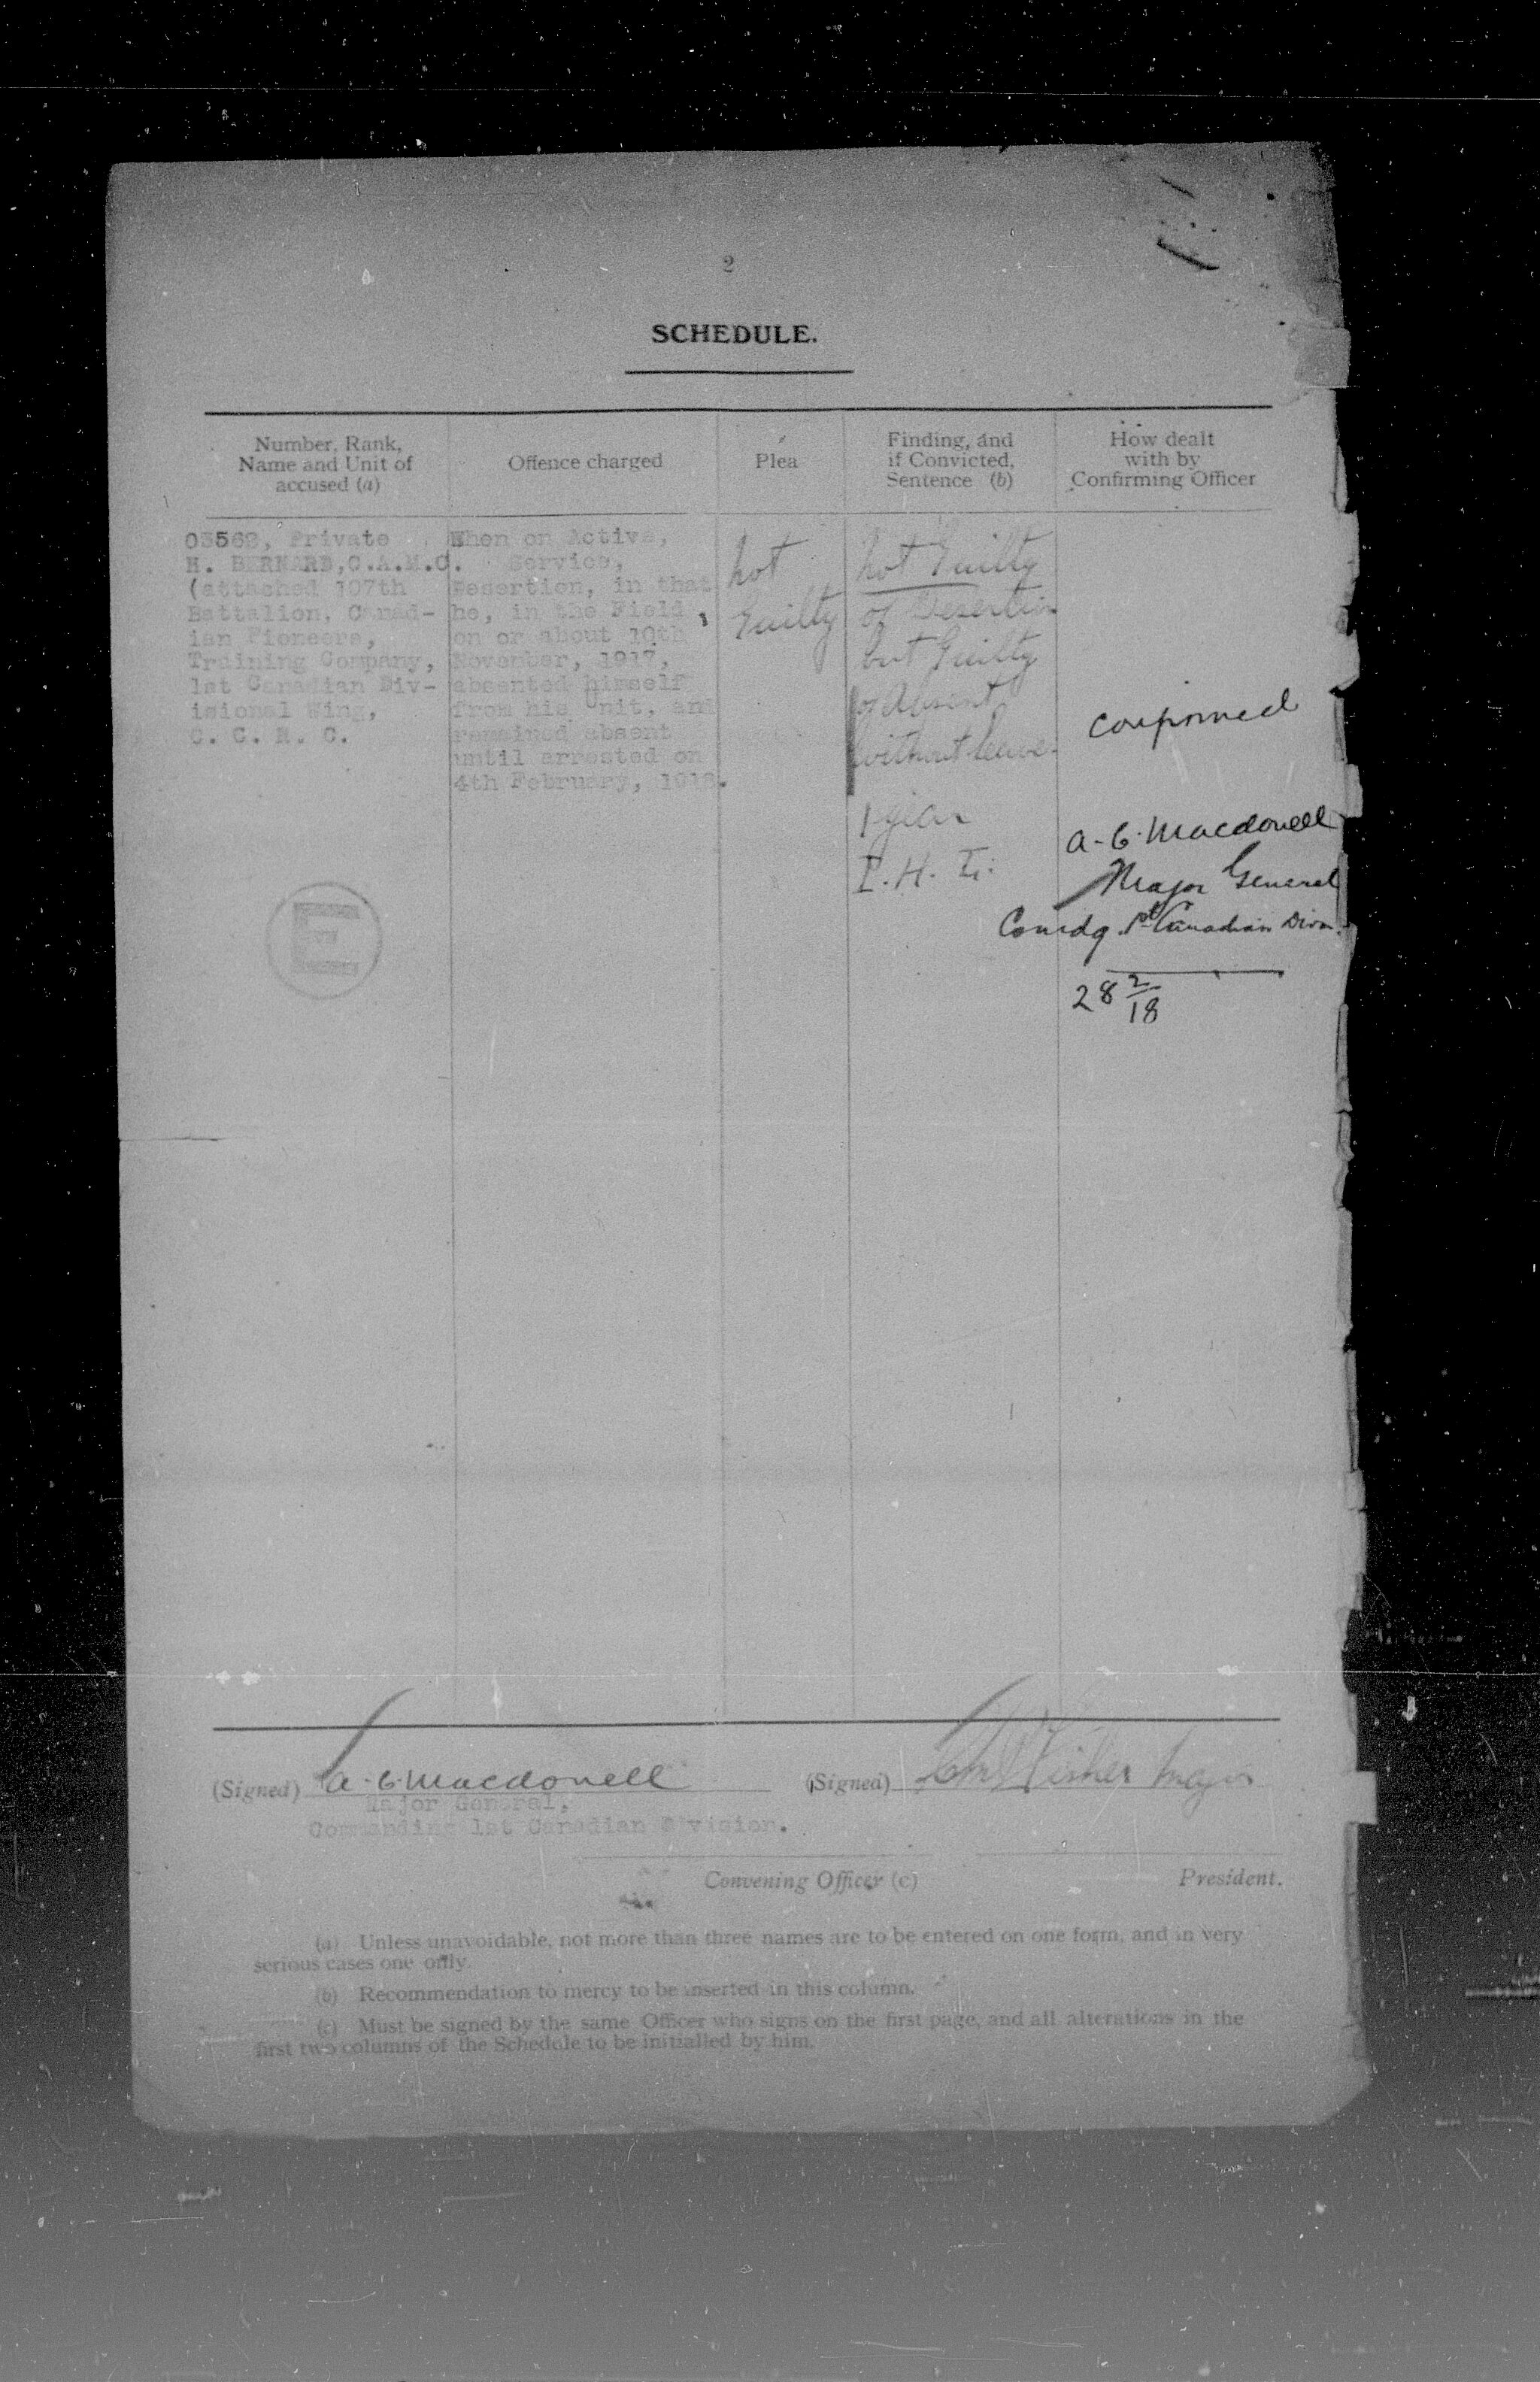 2
SCHEDULE.
Number, Rank,
Name and Unit of
accused (a)
Offence charged
Plea
Finding, and
if Convicted,
Sentence (b)
How dealt
with by
Confirming Officer
03568, Private
H. BERNARD, C.A.M.C.
(attached 107th
Battalion, Canad-
ian Pioneers,
Training Company,
1st Canadian Div-
isional Wing,
C. C. R. C.
When on Active,
Service,
Desertion, in that
he, in the Field,
on or about 10th
November, 1917,
absented himself
from his Unit, and
remained absent
until arrested on
4th February, 1918.
not
Guilty
not Guilty
of Desertion
but Guilty
of Absent
without leave.
1 year
I. H. L.
Confirmed
A. C. Macdonell
Major General
Comdg. 1st Canadian Divn.
28 2/18
(Signed) A. C. Macdonell
Major General,
Commanding 1st Canadian Division.
Convening Officer (c)
(Signed) Fisher Major
President.
(a) Unless unavoidable, not more than three names are to be entered on one form, and in very
serious cases one only.
(b) Recommendation to mercy to be inserted in this column.
(c) Must be signed by the same Officer who signs on the first page, and all alterations in the
first two columns of the Schedule to be initialled by him.